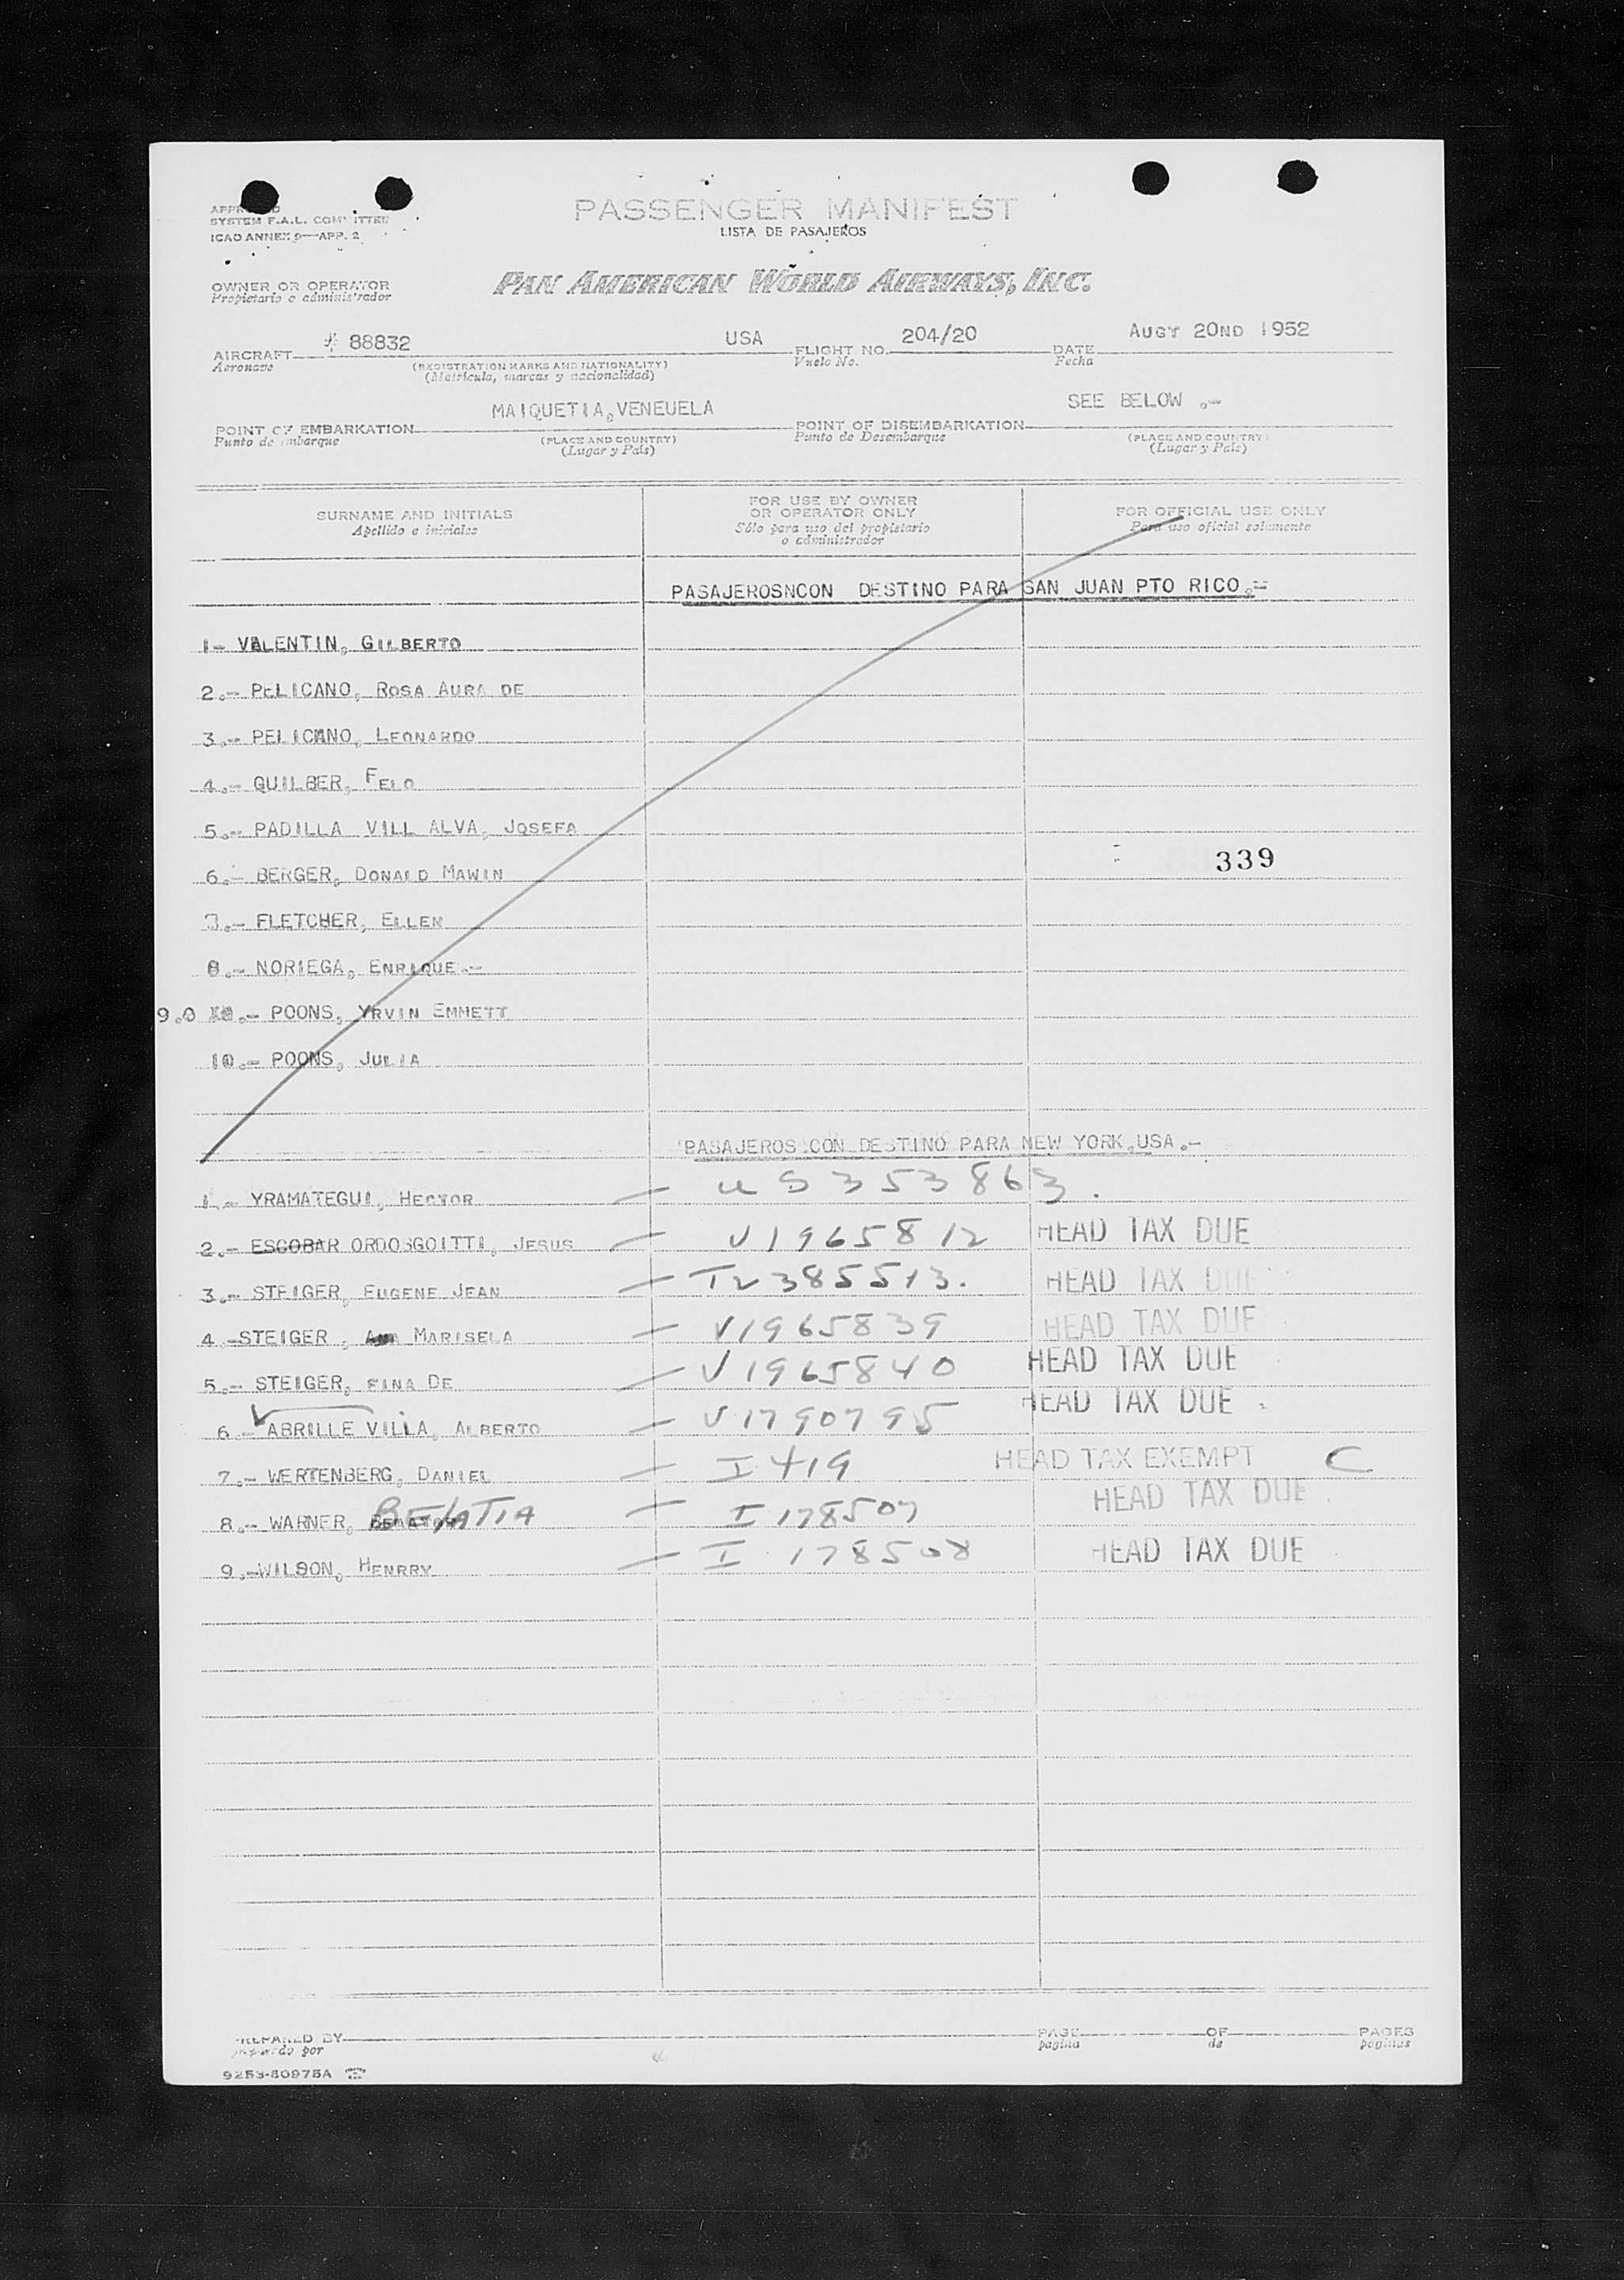 APPROVED
SYSTEM F.A.L. COMMITTEE
ICAO ANNEX 9—APP. 2
PASSENGER MANIFEST
LISTA DE PASAJEROS
OWNER OR OPERATOR
Propietario o administrador
PAN AMERICAN WORLD AIRWAYS, INC.
AIRCRAFT # 88832 USA FLIGHT NO. 204/20 DATE AUGT 20ND 1952
Aeronave (REGISTRATION MARKS AND NATIONALITY) Vuelo No. Fecha
(Matrícula, marcas y nacionalidad)
POINT OF EMBARKATION MAIQUETIA, VENEUELA POINT OF DISEMBARKATION SEE BELOW .-
Punto de embarque (PLACE AND COUNTRY) Punto de Desembarque (PLACE AND COUNTRY)
(Lugar y País) (Lugar y País)
SURNAME AND INITIALS FOR USE BY OWNER OR OPERATOR ONLY FOR OFFICIAL USE ONLY
Apellido e iniciales Sólo para uso del propietario o administrador Para uso oficial solamente
PASAJEROSNCON DESTINO PARA SAN JUAN PTO RICO.-
1- VALENTIN, GILBERTO
2.- PELICANO, ROSA AURA DE
3.- PELICANO, LEONARDO
4.- QUILBER, FELO
5.- PADILLA VILL ALVA, JOSEFA
6.- BERGER, DONALD MAWIN 339
7.- FLETCHER, ELLEN
8.- NORIEGA, ENRIQUE.-
9.0 .- POONS, YRVIN EMMETT
10.- POONS, JULIA
PASAJEROS CON DESTINO PARA NEW YORK, USA.-
1.- YRAMATEGUI, HECTOR — US 353863.
2.- ESCOBAR ORDOSGOITTI, JESUS — V1965812 HEAD TAX DUE
3.- STEIGER, EUGENE JEAN — T2385513. HEAD TAX DUE
4.-STEIGER, MARISELA — V1965839 HEAD TAX DUE
5.- STEIGER, FINA DE — V1965840 HEAD TAX DUE
6.- ABRILLE VILLA, ALBERTO — V1790795 HEAD TAX DUE
7.- WERTENBERG, DANIEL — I419 HEAD TAX EXEMPT C
8.- WARNER, — I 178507 HEAD TAX DUE
9.-WILSON, HENRRY — I 178508 HEAD TAX DUE
PREPARED BY PAGE OF PAGES
preparado por página de páginas
9253-80975A